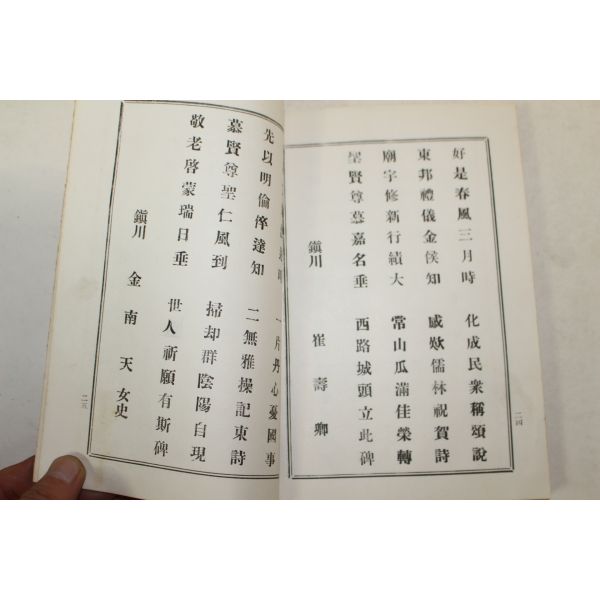 好是春風三月時 化成民衆稱頌說
東邦禮儀金侯知 咸歎儒林祝賀詩
廟宇修新行績大 常山瓜滿佳榮轉
聖賢尊慕嘉名垂 西路城頭立此碑
鎭川 崔壽卿
二四
一片丹心憂國事
先以明倫倅達知 二無雅操記東詩
慕賢尊聖仁風到 掃却群陰陽自現
敬老啓蒙瑞日垂 世人祈願有斯碑
鎭川 金南天女史
二五